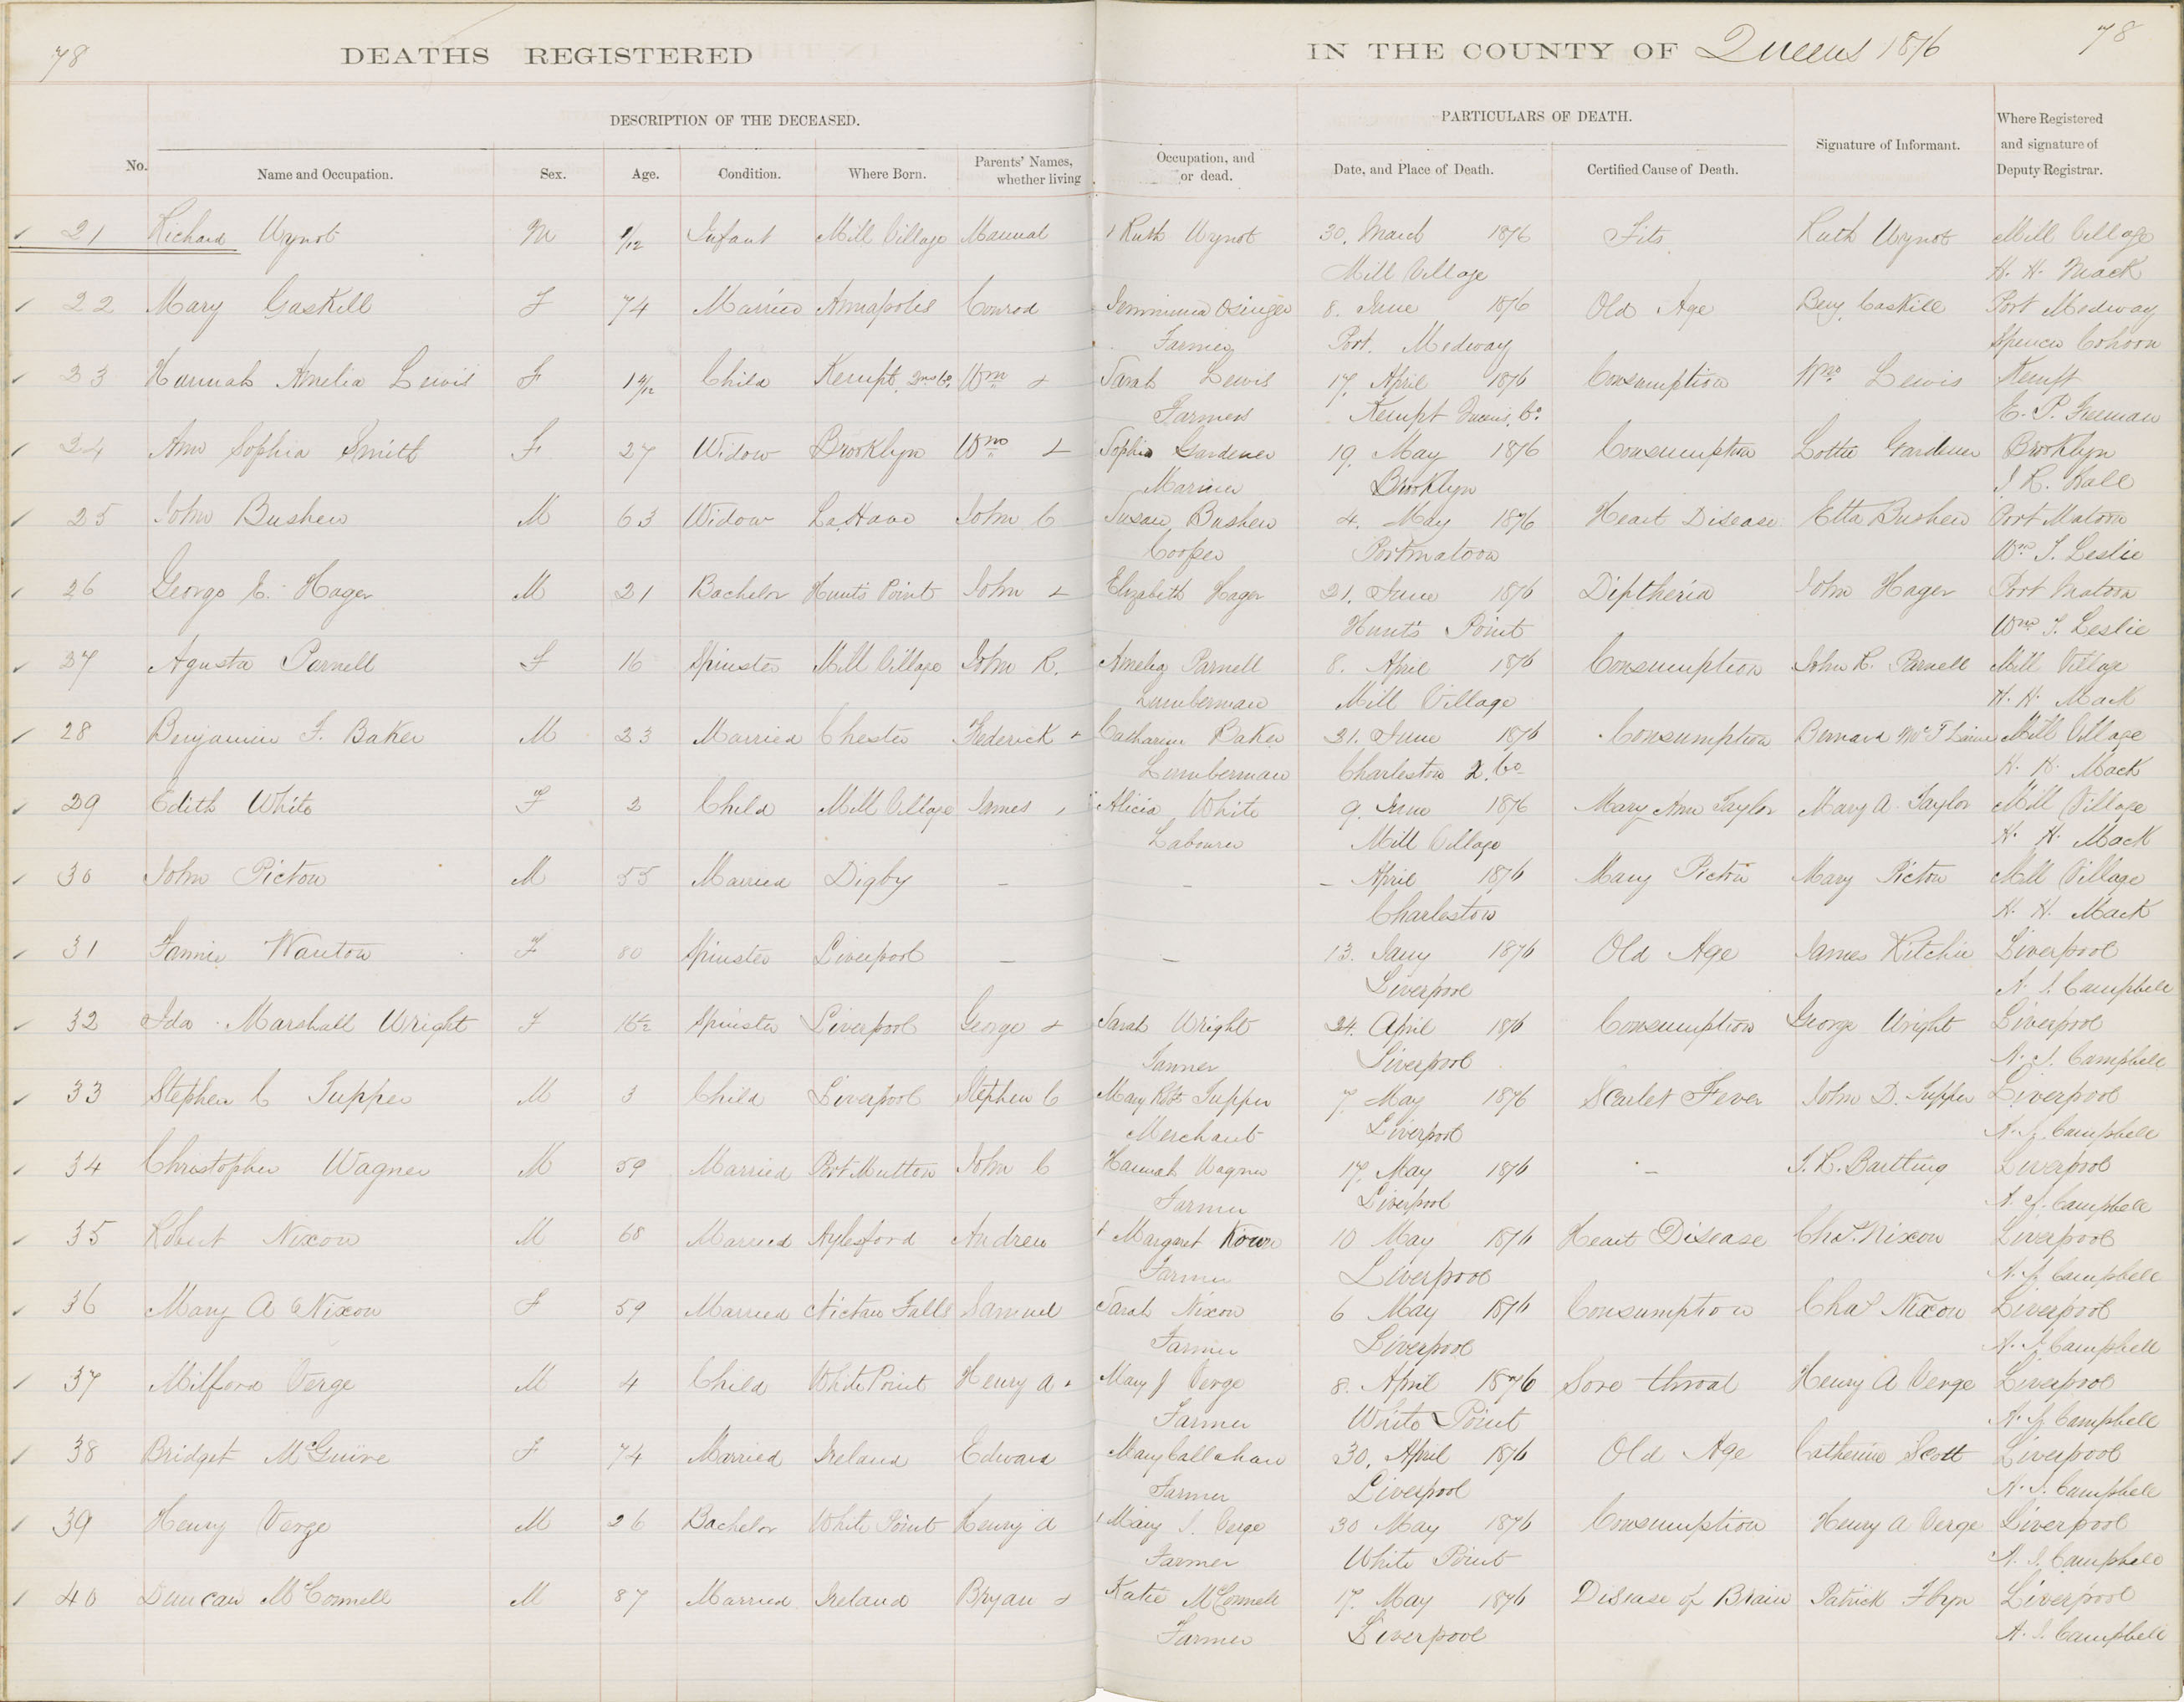 78 DEATHS REGISTERED IN THE COUNTY OF Queens 1876 78
DESCRIPTION OF THE DECEASED. PARTICULARS OF DEATH. Signature of Informant. Where Registered and signature of Deputy Registrar.
No. Name and Occupation. Sex. Age. Condition. Where Born. Parents' Names, whether living Occupation, and or dead. Date, and Place of Death. Certified Cause of Death.
21 Richard Wynot M 1/12 Infant Mill Village Manual & Ruth Wynot 30. March 1876 Fits Ruth Wynot Mill Village
Mill Village H. H. Mack
22 Mary Gaskill F 74 Married Annapolis Conrod Jemmima Osinger 8. June 1876 Old Age Benj. Caskill Port Medway
Farmer Port. Medway Spencer Cohoon
23 Hannah Amelia Lewis F 1 Child Kempt Wm & Sarah Lewis 17. April 1876 Consumption Wm Lewis Kempt
Farmers Kempt Queens. Co. E. P. Freeman
24 Ann Sophia Smith F 27 Widow Brooklyn Wm & Sophia Gardener 19. May 1876 Consumption Lottie Gardener Brooklyn
Mariner Brooklyn
25 John Bushen M 63 Widow LaHave John C Susan Bushen 4. May 1876 Heart Disease Etta Bushen Port Matoon
Cooper Portmatoon Wm T. Leslie
26 George E. Hager M 21 Bachelor Hunts Point John & Elizabeth Hager 21. June 1876 Diptheria John Hager Port Matoon
Hunt's Point Wm T. Leslie
27 Agusta Parnell F 16 Spinster Mill Village John R. Amelia Parnell 8. April 1876 Consumption John R. Parnell Mill Village
Lumberman Mill Village H. H. Mack
28 Benjamin F. Baker M 23 Married Chester Frederick & Catharine Baker 21. June 1876 Consumption Bernard Mill Village
Lumberman Charleston Q. Co. H. H. Mack
29 Edith White F 2 Child Mill Village James & Alicia White 9. June 1876 Mary Ann Taylor Mary A. Taylor Mill Village
Labourer Mill Village H. H. Mack
30 John Picton M 55 Married Digby – – – April 1876 Mary Picton Mary Picton Mill Village
Charleston H. H. Mack
31 Fannie Wanton F 80 Spinster Liverpool – – 13. Jany 1876 Old Age James Ritchie Liverpool
Liverpool A. J. Campbell
32 Ida Marshall Wright F 16½ Spinster Liverpool George & Sarah Wright 24. April 1876 Consumption George Wright Liverpool
Tanner Liverpool A. J. Campbell
33 Stephen C Tupper M 3 Child Liverpool Stephen C Mary Tupper 7. May 1876 Scarlet Fever John D. Tupper Liverpool
Merchant Liverpool A. J. Campbell
34 Christopher Wagner M 59 Married Port Mutton John C Hannah Wagner 17. May 1876 – T. R. Bartling Liverpool
Farmer Liverpool A. J. Campbell
35 Robert Nixon M 68 Married Aylesford Andrew & Margaret 10 May 1876 Heart Disease Chas. Nixon Liverpool
Farmer Liverpool A. J. Campbell
36 Mary A Nixon F 59 Married Nictau Falls Samuel Sarah Nixon 6 May 1876 Consumption Chas Nixon Liverpool
Farmer Liverpool A. J. Campbell
37 Milford Verge M 4 Child White Point Henry A & Mary J Verge 8. April 1876 Sore throat Henry A Verge Liverpool
Farmer White Point A. J. Campbell
38 Bridget McGuire F 74 Married Ireland Edward Mary Callahan 30. April 1876 Old Age Catherine Scott Liverpool
Farmer Liverpool A. J. Campbell
39 Henry Verge M 26 Bachelor White Point Henry A & Mary J. Verge 30 May 1876 Consumption Henry A Verge Liverpool
Farmer White Point A. J. Campbell
40 Duncan McConnell M 87 Married Ireland Bryan & Katie McConnell 17. May 1876 Disease of Brain Patrick Liverpool
Farmer Liverpool A. J. Campbell